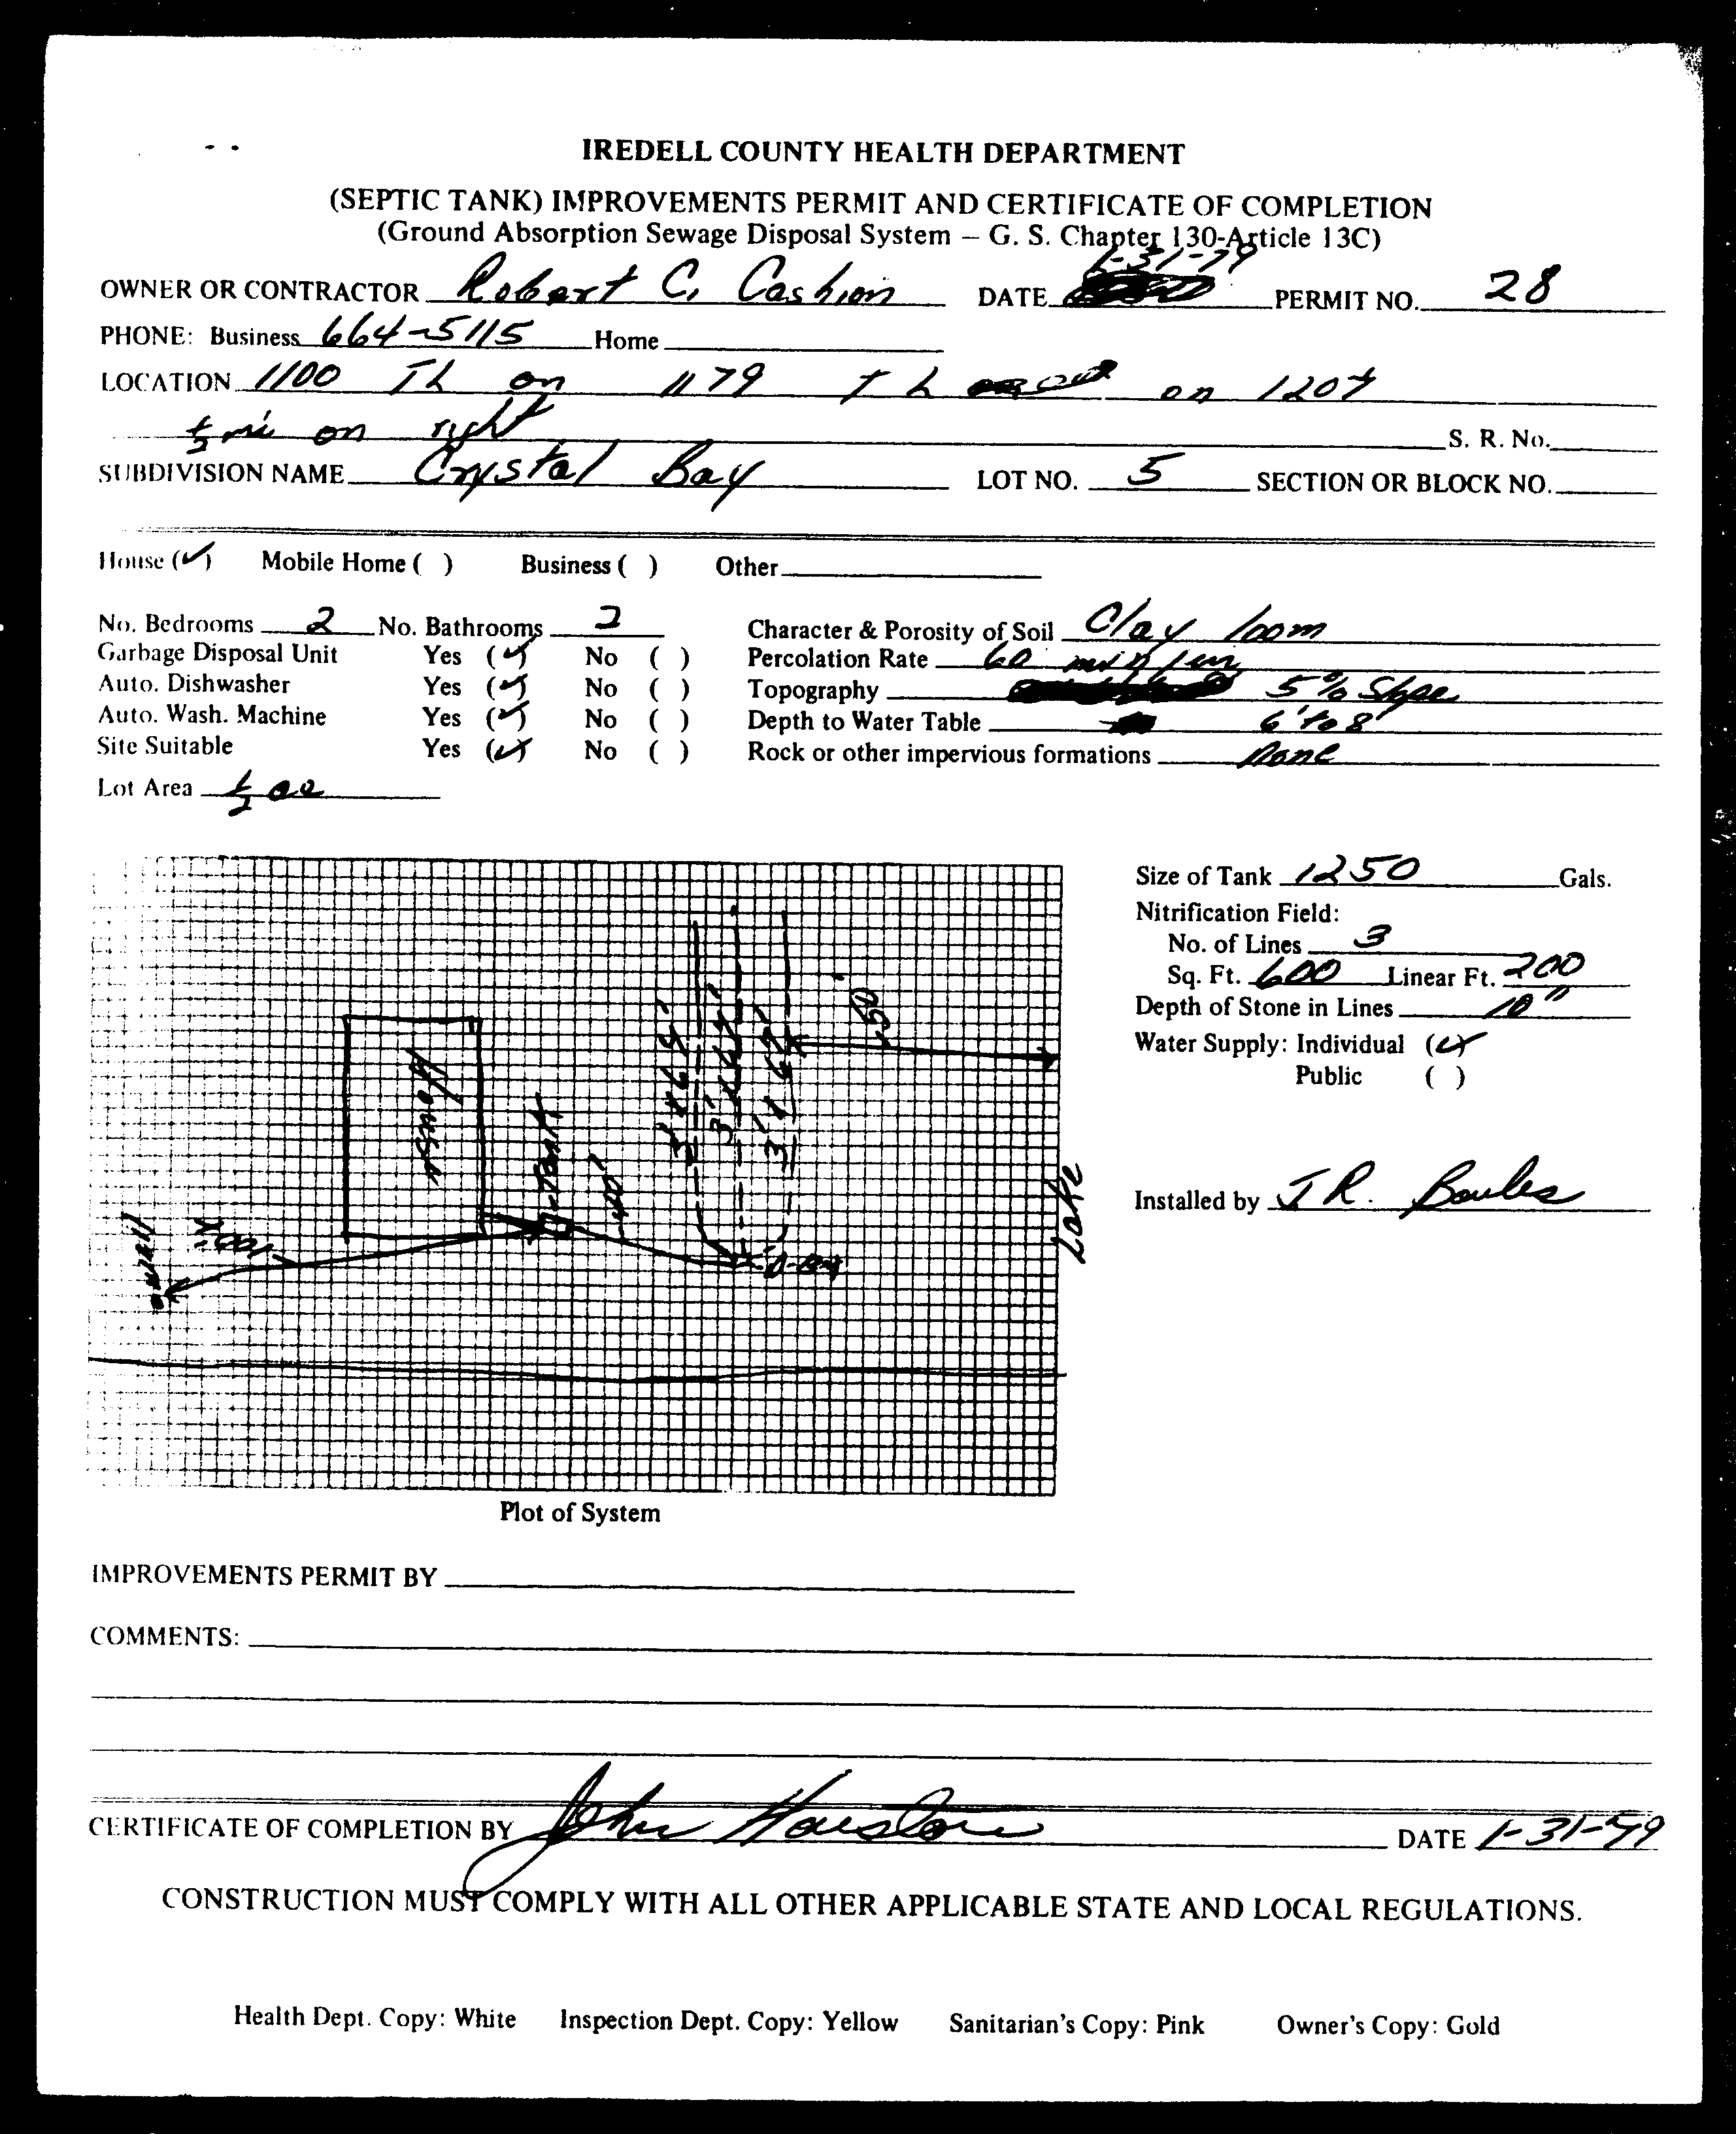 IREDELL COUNTY HEALTH DEPARTMENT
(SEPTIC TANK) IMPROVEMENTS PERMIT AND CERTIFICATE OF COMPLETION
(Ground Absorption Sewage Disposal System – G. S. Chapter 130-Article 13C)
OWNER OR CONTRACTOR Robert C. Cashion DATE 1-31-79 PERMIT NO. 28
PHONE: Business 664-5115 Home
LOCATION 1100 TL on 1179 TL on 1207
1/2 mi on right S. R. No.
SUBDIVISION NAME Crystal Bay LOT NO. 5 SECTION OR BLOCK NO.
House (✓) Mobile Home ( ) Business ( ) Other
No. Bedrooms 2 No. Bathrooms 2 Character & Porosity of Soil Clay loom
Garbage Disposal Unit Yes (✓) No ( ) Percolation Rate 60 min/in
Auto. Dishwasher Yes (✓) No ( ) Topography 5% Slope
Auto. Wash. Machine Yes (✓) No ( ) Depth to Water Table 6' to 8'
Site Suitable Yes (✓) No ( ) Rock or other impervious formations none
Lot Area 1/2 ac
Size of Tank 1250 Gals.
Nitrification Field:
No. of Lines 3
Sq. Ft. 600 Linear Ft. 200
Depth of Stone in Lines 10"
Water Supply: Individual (✓)
Public ( )
Installed by J R. Boules
House
Tank
40'
50'
well
100'
Lake
Plot of System
IMPROVEMENTS PERMIT BY
COMMENTS:
CERTIFICATE OF COMPLETION BY John Houston DATE 1-31-79
CONSTRUCTION MUST COMPLY WITH ALL OTHER APPLICABLE STATE AND LOCAL REGULATIONS.
Health Dept. Copy: White Inspection Dept. Copy: Yellow Sanitarian's Copy: Pink Owner's Copy: Gold